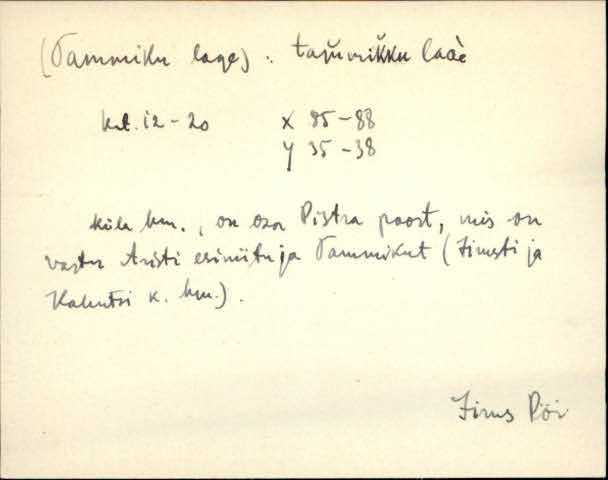 (Tammiku lage) : tam̆mikku laaè
krt. 12-20 X 85-88
Y 35-38
küla hm., on osa Pistra soost, mis on
vastu Aristi esiniitu ja Tammikut (Jimsti ja
Kalmtsi k. hm.).
Pöi